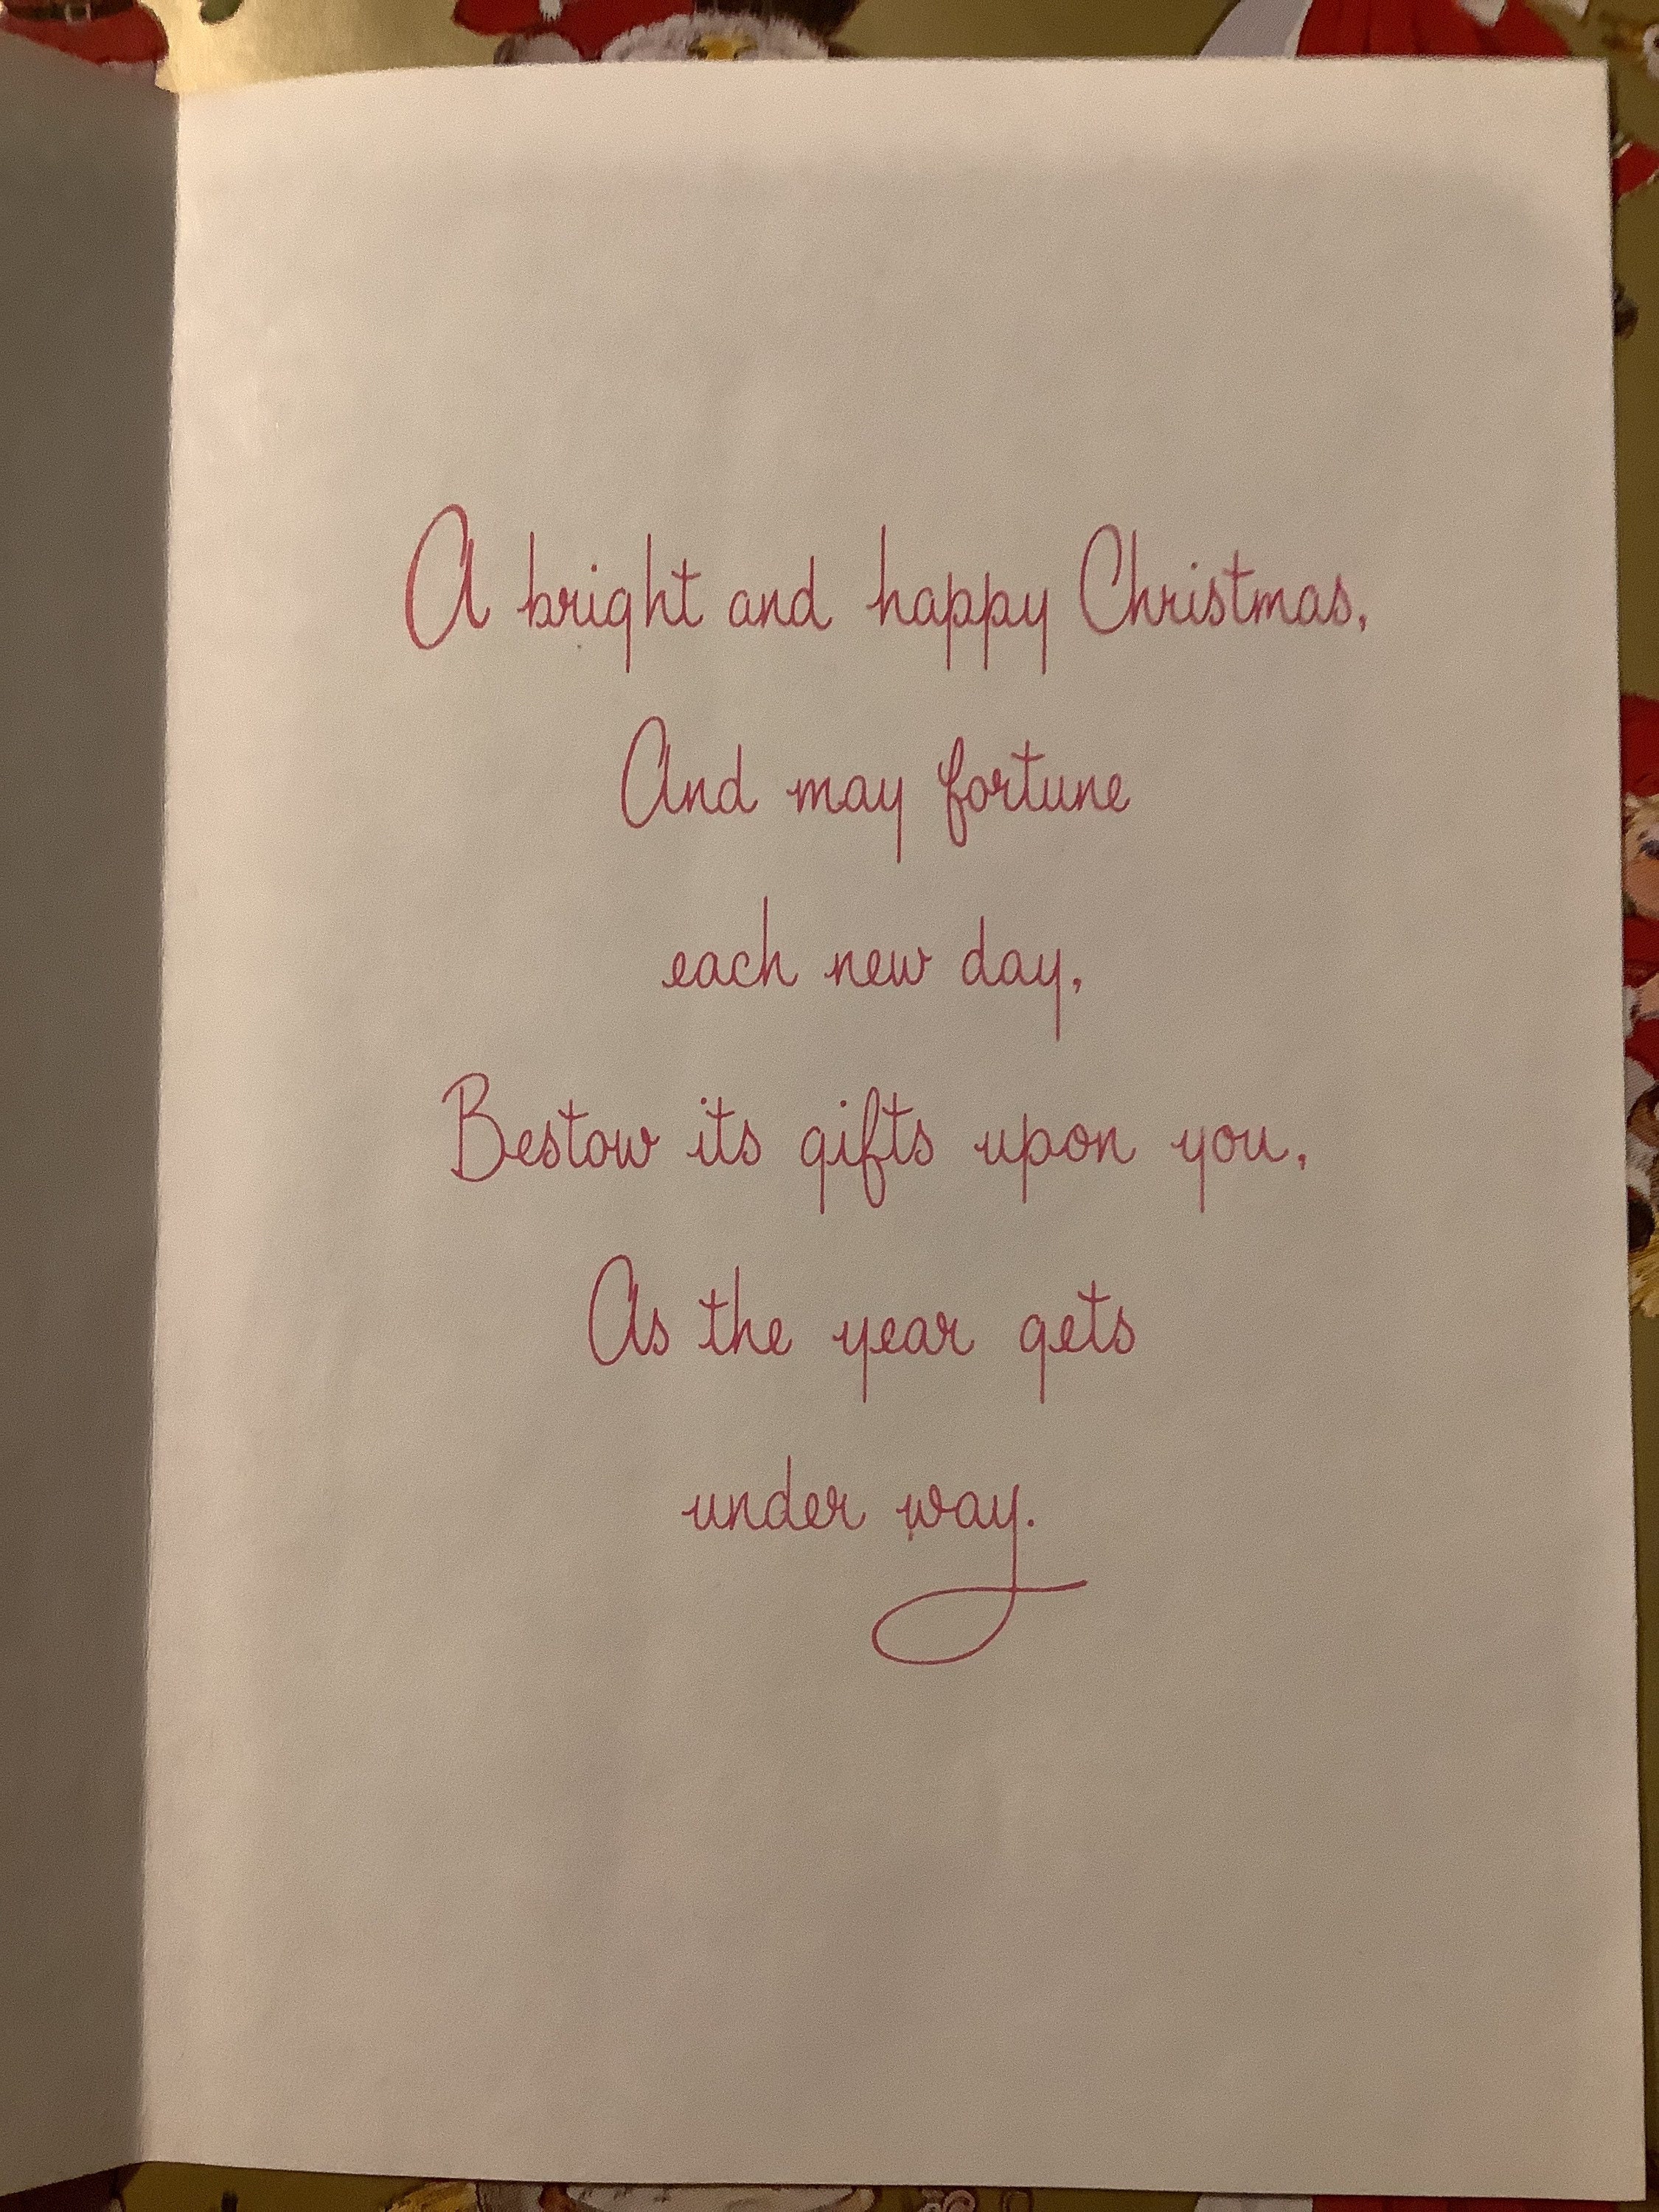 A bright and happy Christmas,
And may fortune
each new day,
Bestow its gifts upon you,
As the year gets
under way.